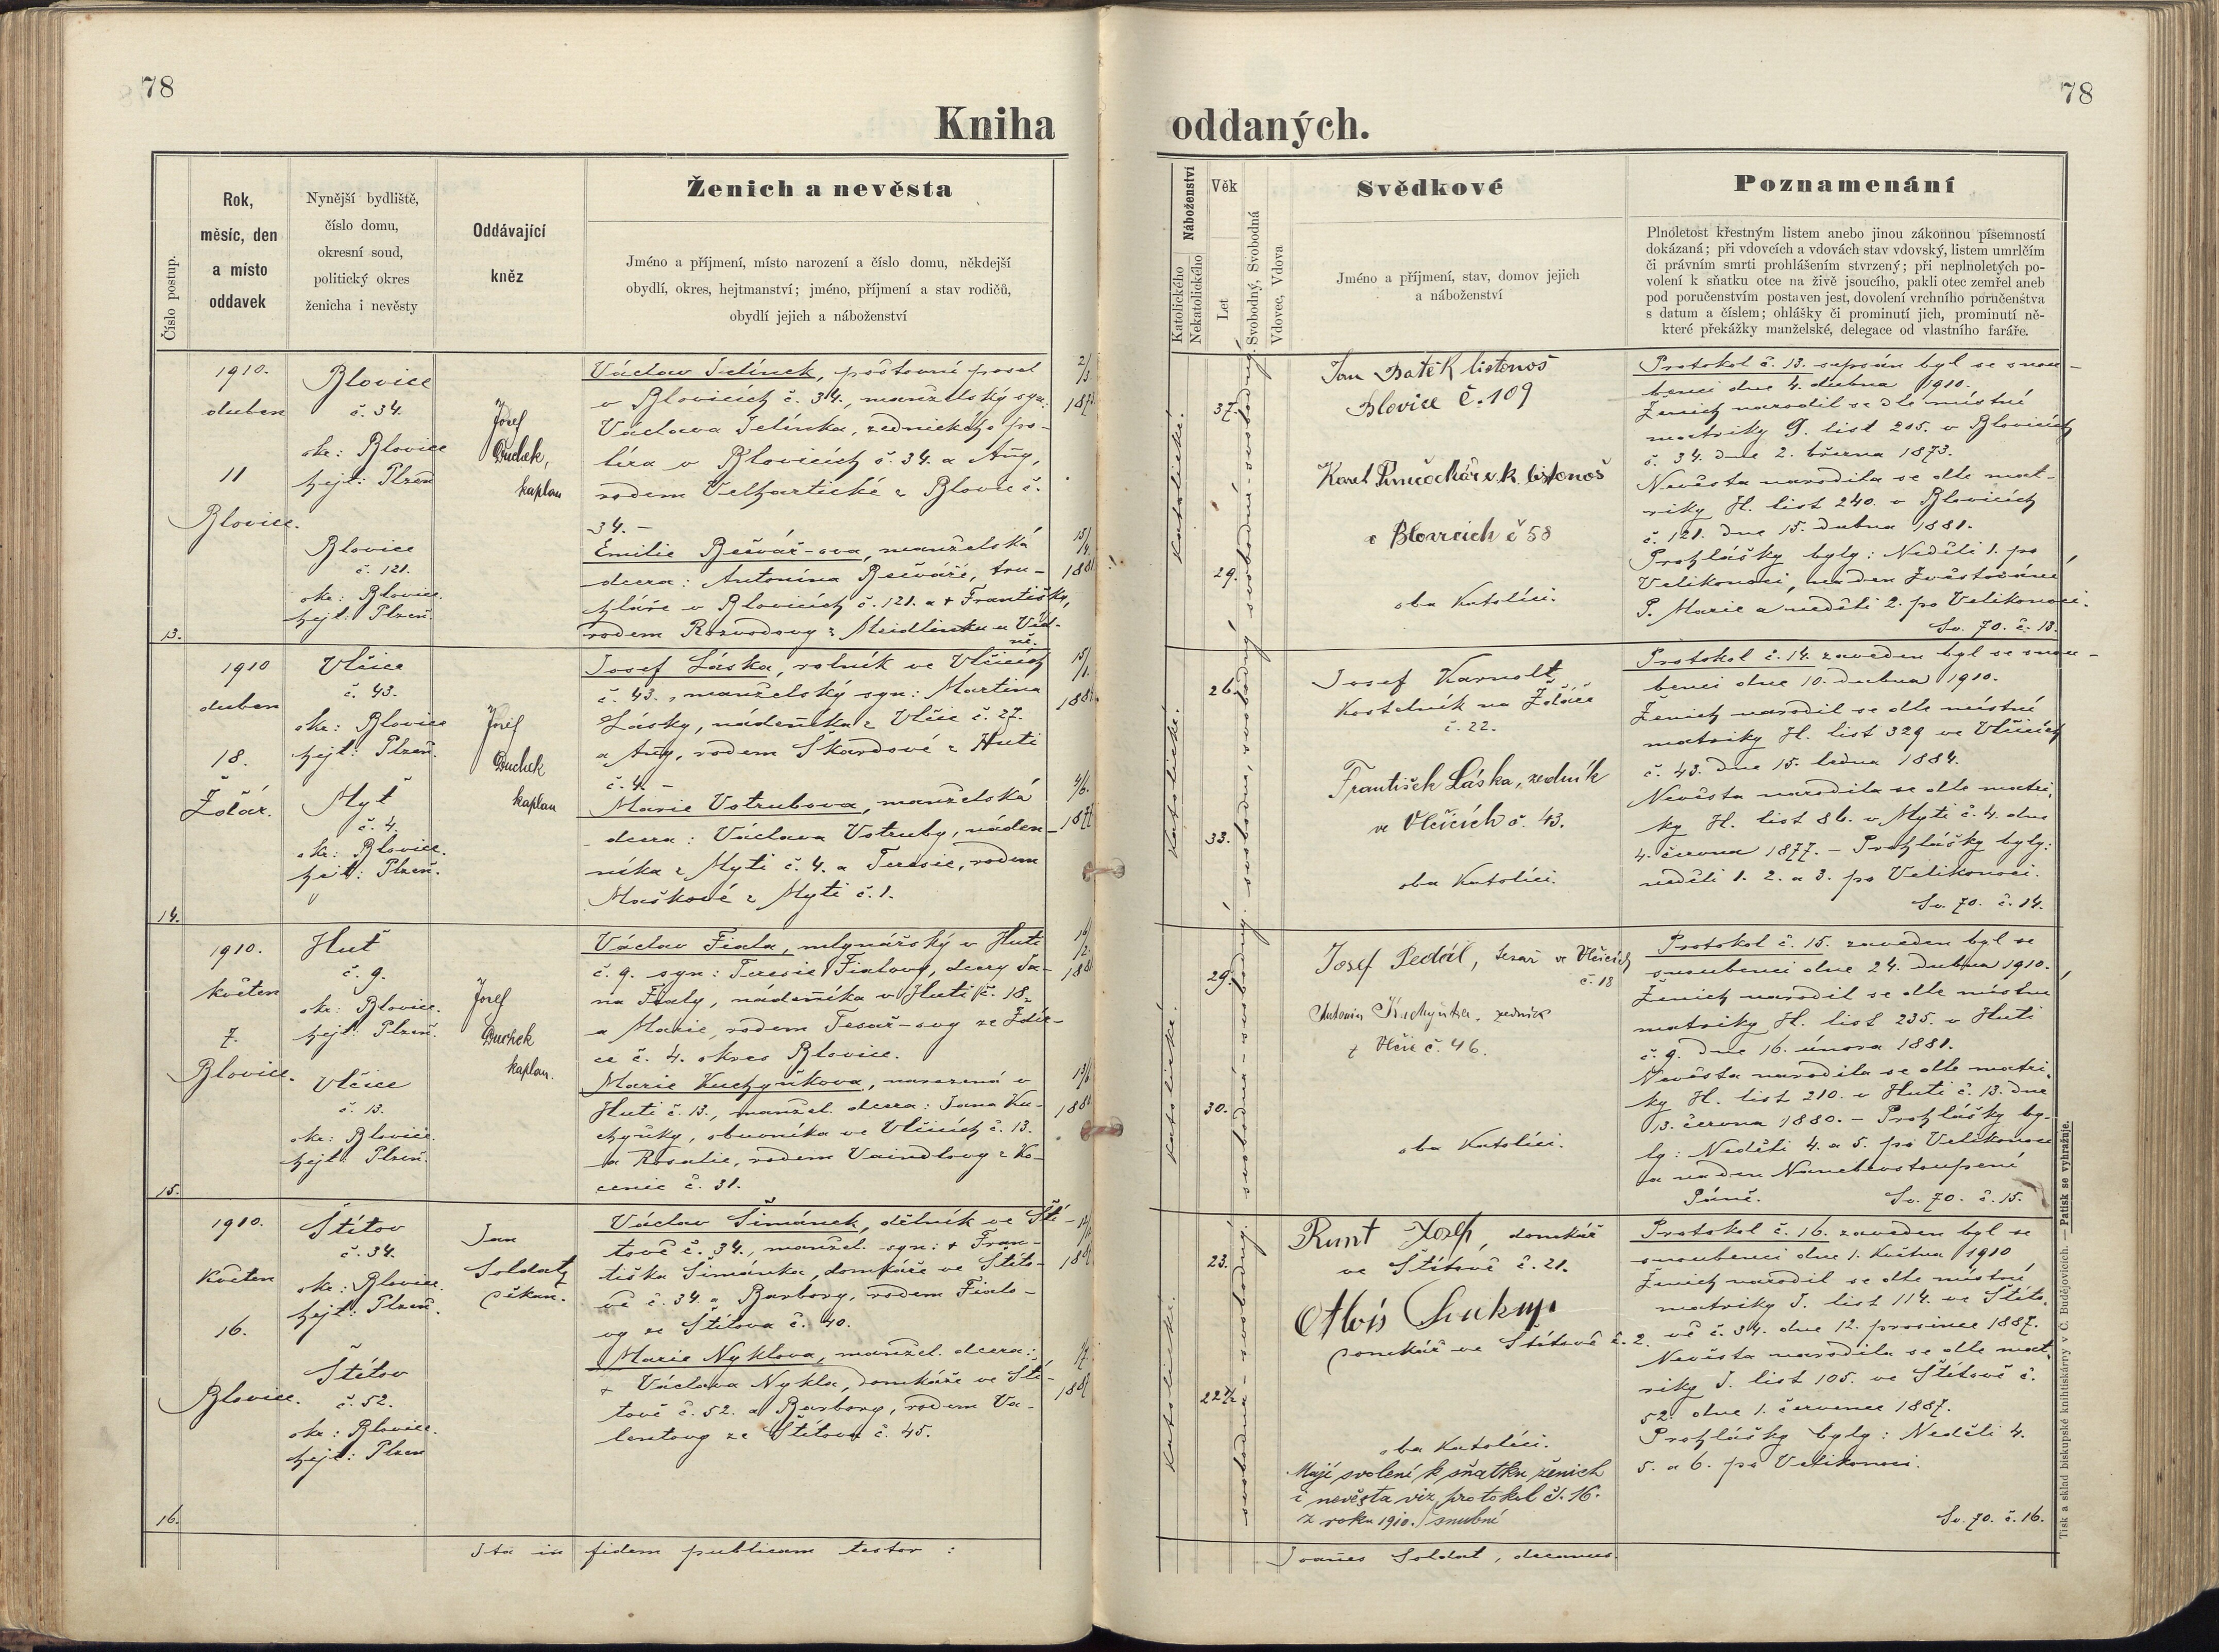 78
78
Kniha oddaných.
Číslo postup.
Rok,
měsíc, den
a místo
oddavek
Nynější bydliště,
číslo domu,
okresní soud,
politický okres
ženicha i nevěsty
Oddávající
kněz
Ženich a nevěsta
Jméno a příjmení, místo narození a číslo domu, někdejší
obydlí, okres, hejtmanství; jméno, příjmení a stav rodičů,
obydlí jejich a náboženství
Náboženství
Katolického
Nekatolického
Věk
Let
Svobodný, Svobodná
Vdovec, Vdova
Svědkové
Jméno a příjmení, stav, domov jejich
a náboženství
Poznamenání
Plnoletost křestným listem anebo jinou zákonnou písemností
dokázaná; při vdovcích a vdovách stav vdovský, listem umrlčím
či právním smrti prohlášením stvrzený; při neplnoletých po-
volení k sňatku otce na živě jsoucího, pakli otec zemřel aneb
pod poručenstvím postaven jest, dovolení vrchního poručenstva
s datum a číslem; ohlášky či prominutí jich, prominutí ně-
které překážky manželské, delegace od vlastního faráře.
13.
1910.
duben
11
Blovice.
Blovice
č. 34.
okr: Blovice
hejt: Plzeň
Blovice
č. 121.
okr: Blovice.
hejt: Plzeň.
Josef
Duchek,
kaplan
Václav Jelínek, poštovní posel
v Blovicích č. 34., manželský syn:
Václava Jelínka, zednického po-
líra v Blovicích č. 34. a Anny,
rodem Velhartické z Blovic č.
34. –
Emilie Bečvář-ova, manželská
dcera: Antonína Bečváře, tru-
hláře v Blovicích č. 121. a + Františky,
rodem Rozvodovy z Meidlinku u Víd-
ně.
2/3.
1873
15/4.
1881
katolické.
37.
29.
svobodný
svobodná
Jan Batěk listonoš
Blovice č. 109
Karel Punčochář k. listonoš
v Blovicích č 58
oba katolíci.
Protokol č. 13. sepsán byl se snou-
benci dne 4. dubna 1910.
Ženich narodil se dle místné
matriky G. list 205. v Blovicích
č. 34. dne 2. března 1873.
Nevěsta narodila se dle mat-
riky H. list 240. v Blovicích
č. 121. dne 15. dubna 1881.
Prohlášky byly: Neděli 1. po
Velikonoci, na den Zvěstování
P. Marie a neděli 2. po Velikonoci.
Sv. 70. č. 13.
14.
1910
duben
18.
Žďár.
Vlčice
č. 43.
okr: Blovice
hejt: Plzeň.
Myť
č. 4.
okr: Blovice.
hejt: Plzeň.
Josef
Duchek
kaplan
Josef Láska, rolník ve Vlčicích
č. 43., manželský syn: Martina
Lásky, nádeníka z Vlčic č. 27.
a Anny, rodem Škardové z Huti
č. 4. –
Marie Vostrubova, manželská
dcera: Václava Vostruby, náden-
níka z Myti č. 4. a Teresie, rodem
Maškové z Myti č. 1.
15/1.
1884
4/6.
1877
katolické.
26.
33.
svobodný
svobodná
Josef Karnolt
kostelník na Žďáře
č. 22.
František Láska, zedník
ve Vlčicích č. 43.
oba katolíci.
Protokol č. 14. zaveden byl se snou-
benci dne 10. dubna 1910.
Ženich narodil se dle místné
matriky H. list 329 ve Vlčicích
č. 43. dne 15. ledna 1884.
Nevěsta narodila se dle matri-
ky H. list 86. v Myti č. 4. dne
4. června 1877. – Prohlášky byly:
neděli 1. 2. a 3. po Velikonoci.
Sv. 70. č. 14.
15.
1910.
květen
7.
Blovice.
Huť
č. 9.
okr: Blovice.
hejt: Plzeň.
Vlčice
č. 13.
okr: Blovice.
hejt: Plzeň.
Josef
Duchek
kaplan.
Václav Fiala, mlynářský v Huti
č. 9. syn: Teresie Fialovy, dcery Ja-
na Fialy, nádeníka v Huti č. 18,
a Marie, rodem Tesař-ovy ze Ždír-
ce č. 4. okres Blovice.
Marie Kuchyňkova, narozená v
Huti č. 13., manžel. dcera: Jana Ku-
chyňky, obuvníka ve Vlčicích č. 13.
a Rosalie, rodem Vaindlovy z Ko-
cenic č. 31.
16/2.
1881
13/6
1880
katolické.
29.
30.
svobodný
svobodná
Josef Pedál, tesař ve Vlčicích
č. 18
Antonín Kuchyňka, zedník
z Vlčic č. 46.
oba katolíci.
Protokol č. 15. zaveden byl se
snoubenci dne 24. dubna 1910.
Ženich narodil se dle místné
matriky H. list 235. v Huti
č. 9. dne 16. února 1881.
Nevěsta narodila se dle matri-
ky H. list 210. v Huti č. 13. dne
13. června 1880. – Prohlášky by-
ly: Neděli 4. a 5. po Velikonoci
a na den Nanebevstoupení
Páně.
Sv. 70. č. 15.
16.
1910.
Květen
16.
Blovice.
Štítov
č. 34.
okr: Blovice.
hejt: Plzeň.
Štítov
č. 52.
okr: Blovice.
hejt: Plzeň
Jan
Soldat,
děkan.
Václav Šimánek, dělník ve Ští-
tově č. 34., manžel. syn: + Fran-
tiška Šimánka, domkáře ve Štíto-
vě č. 34. a Barbory, rodem Fialo-
vy ze Štítova č. 40.
Marie Nyklova, manžel. dcera:
+ Václava Nykla, domkáře ve Ští-
tově č. 52. a Barbory, rodem Va-
lentovy ze Štítova č. 45.
12/12
1887
1/7.
1887
katolické.
23.
22 1/2
svobodný
svobodná
Runt Josef, domkář
ve Štítově č. 21.
Alois Soukup
domkář ve Štítově č. 2.
oba katolíci.
Mají svolení k sňatku ženich
i nevěsta viz protokol čl. 16.
z roku 1910. snubní
Protokol č. 16. zaveden byl se
snoubenci dne 1. Května 1910
Ženich narodil se dle místné
matriky J. list 114. ve Štíto-
vě č. 34. dne 12. prosince 1887.
Nevěsta narodila se dle mat-
riky J. list 105. ve Štítově č.
52. dne 1. července 1887.
Prohlášky byly: Neděli 4.
5. a 6. po Velikonoci.
Sv. 70. č. 16.
Ita in fidem publicam testor:
Joannes Soldat, decanus.
Tisk a sklad biskupské knihtiskárny v Č. Budějovicích. — Patisk se vyhražuje.